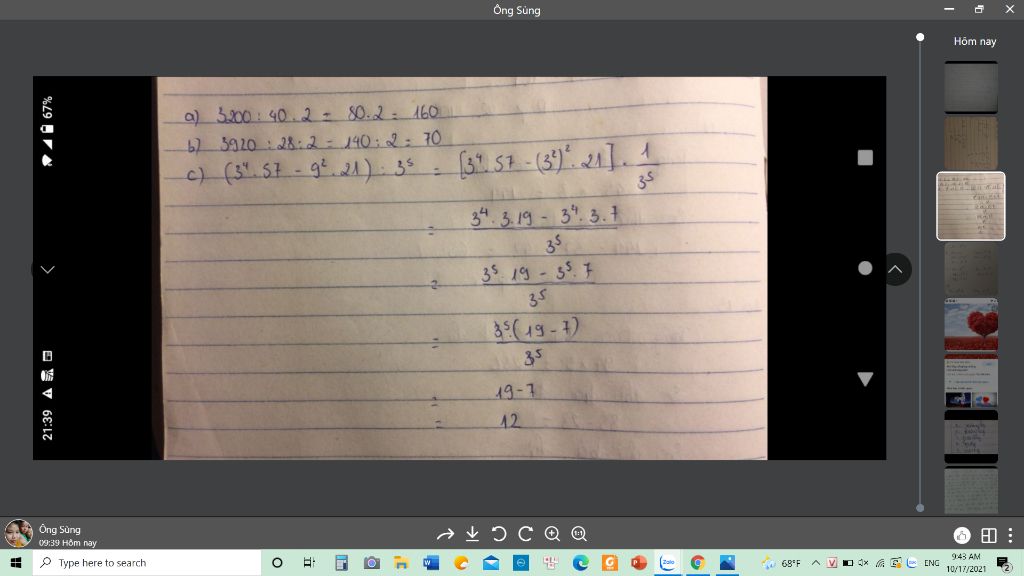 Ông Sùng
Hôm nay
67%
21:39
a) 3200 : 40 . 2 = 80 . 2 = 160
b) 3920 : 28 : 2 = 140 : 2 = 70
c) (3⁴ . 57 - 9² . 21) : 3⁵ = [3⁴ . 57 - (3²)² . 21] . 1/3⁵
= 3⁴ . 3 . 19 - 3⁴ . 3 . 7 / 3⁵
= 3⁵ . 19 - 3⁵ . 7 / 3⁵
= 3⁵ . (19 - 7) / 3⁵
= 19 - 7
= 12
Ông Sùng
09:39 Hôm nay
1:1
Type here to search
Zalo
68°F
ENG
9:43 AM
10/17/2021
2